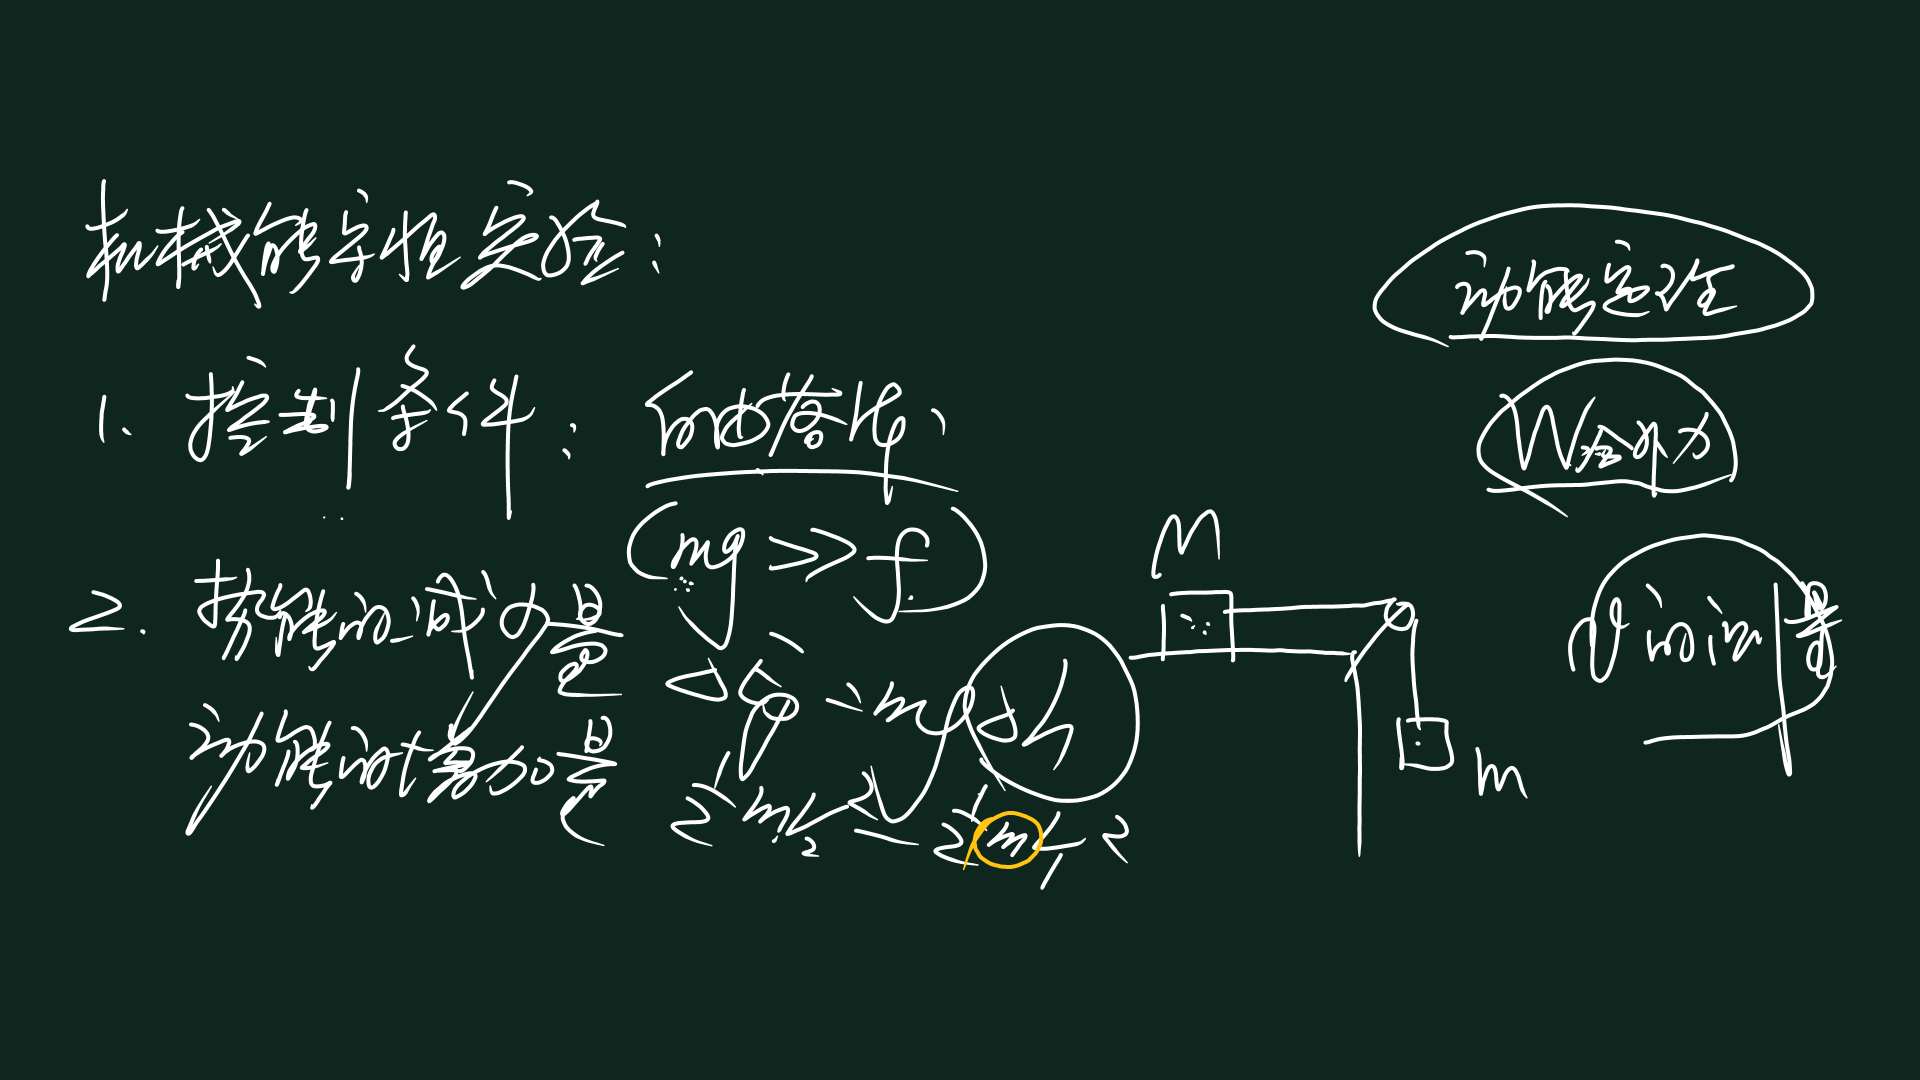 机械能守恒实验：
1、控制条件：自由落体、
(mg >> f)
2. 势能的减少量 ΔEp = mgΔh
动能的增加量 ½mv₂² − ½mv₁²
动能定理
W合外力
M
m
v的测量